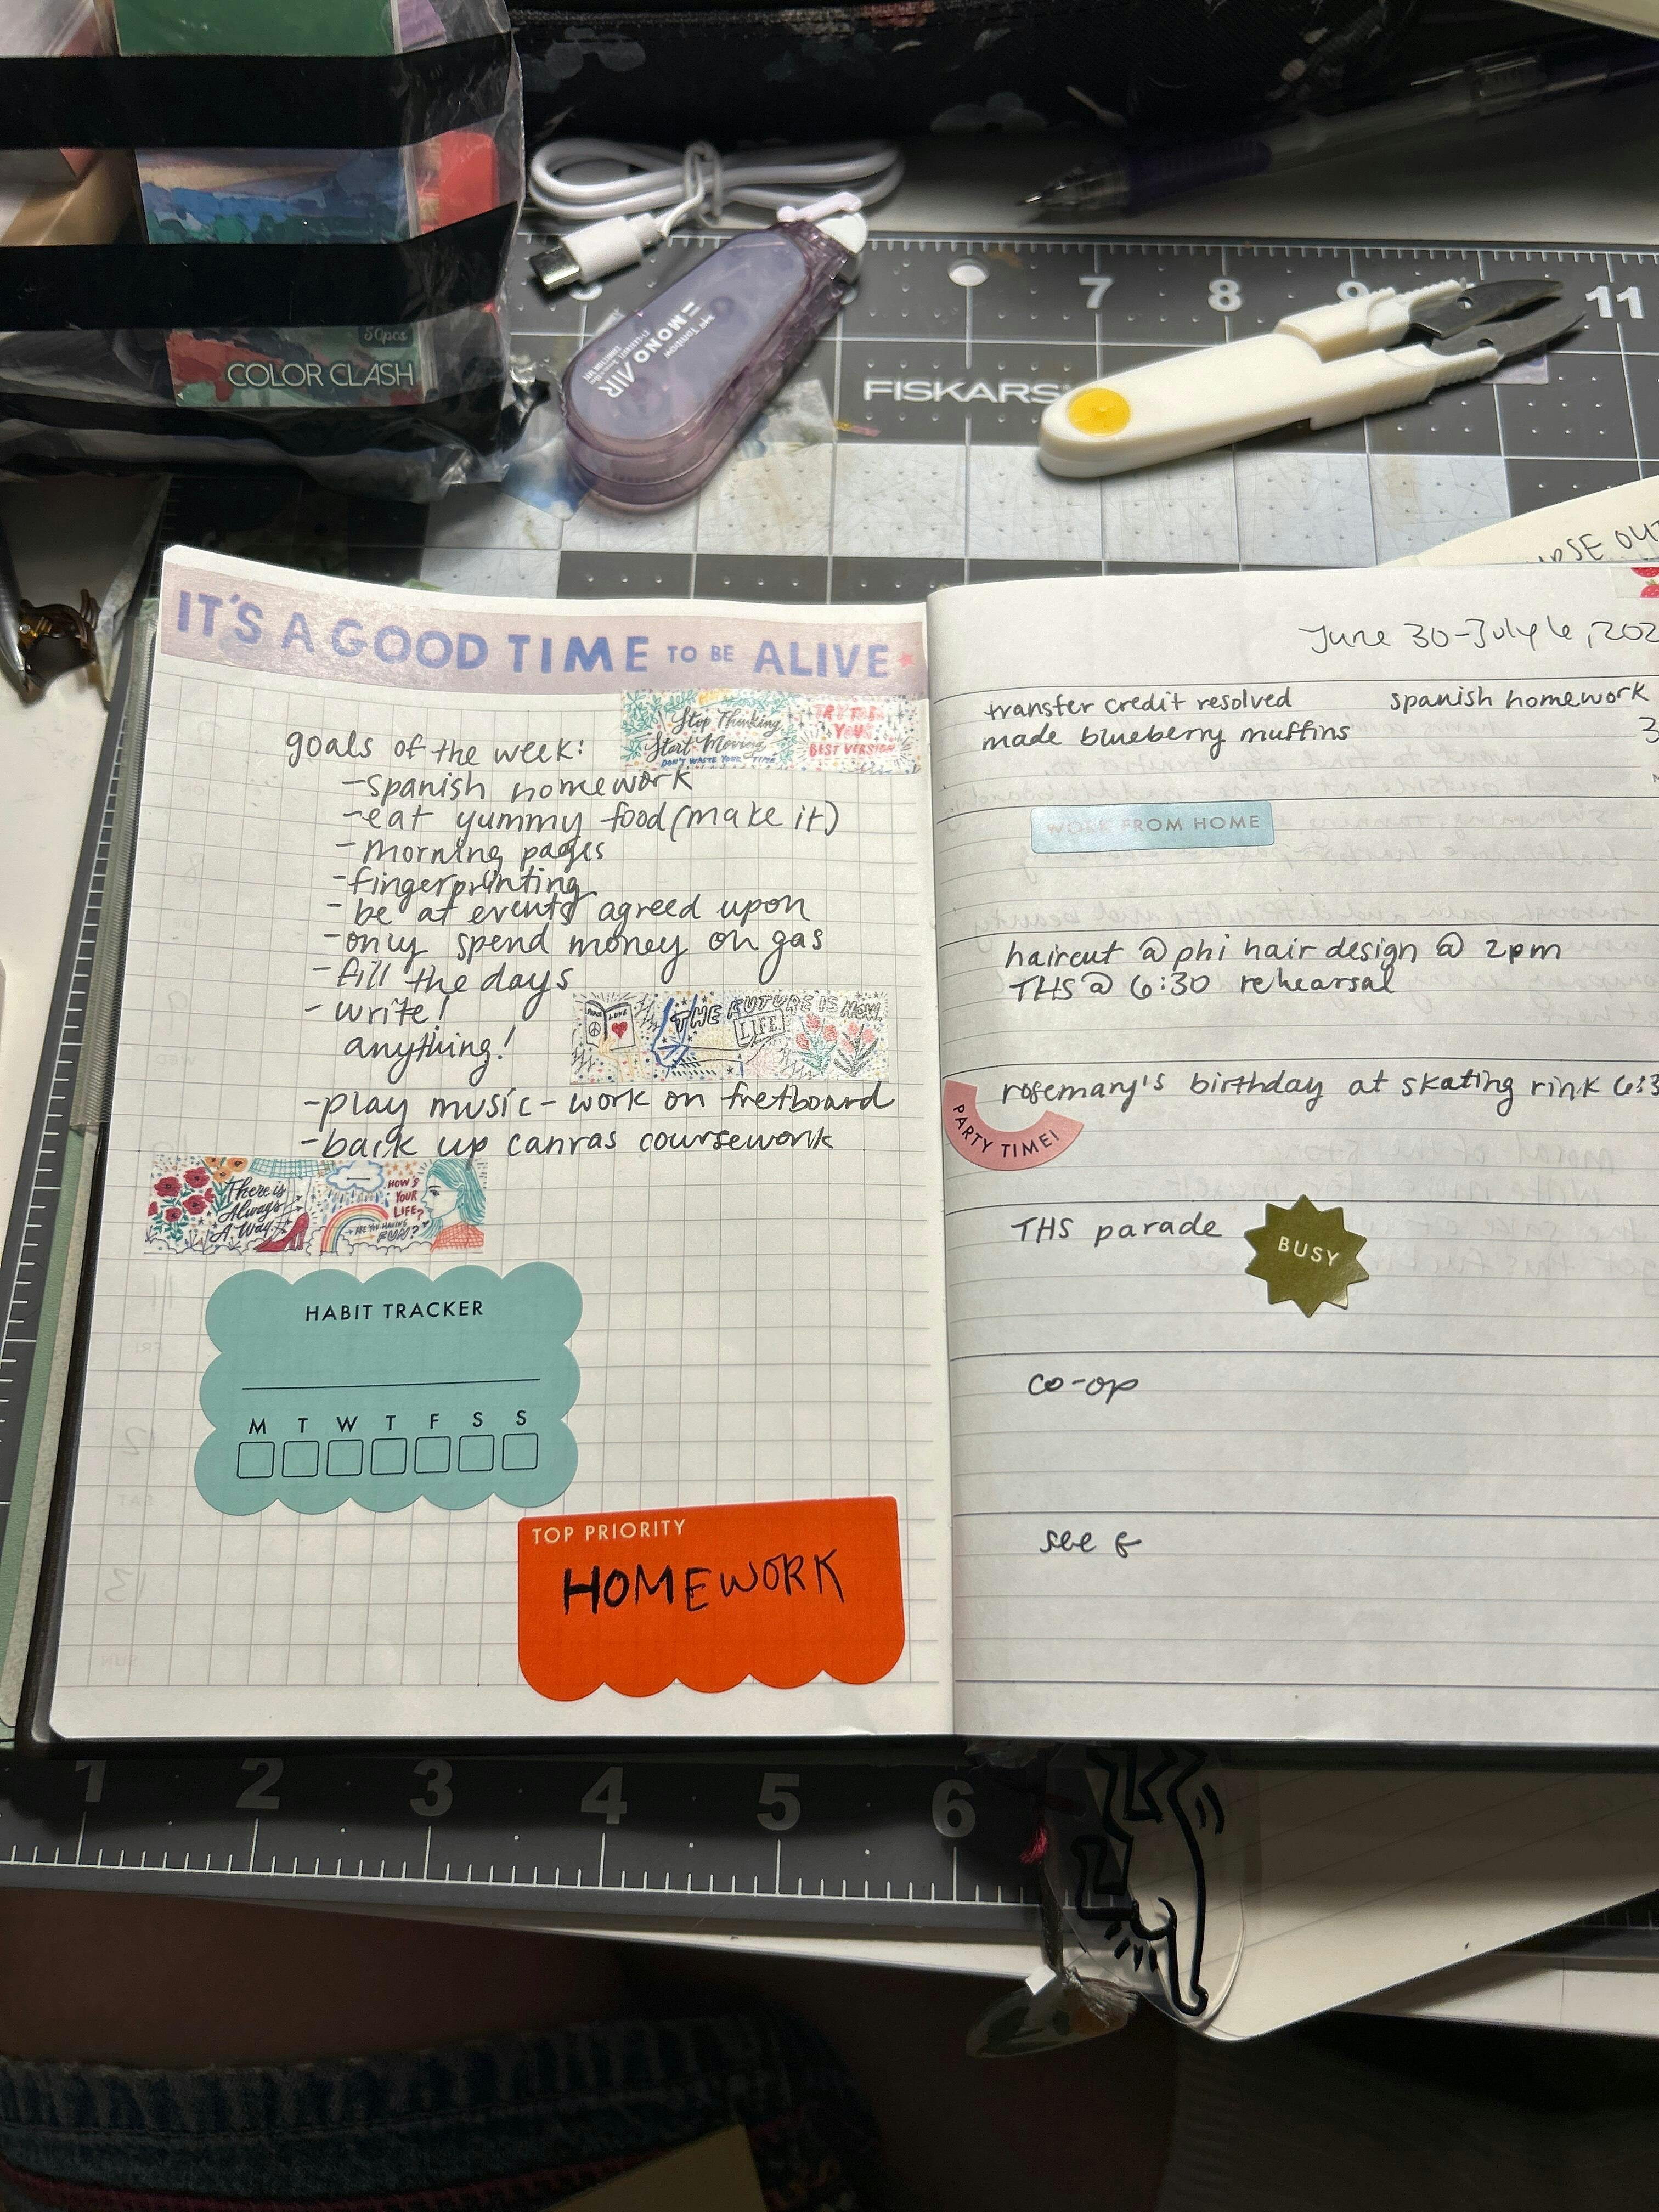 50pcs
COLOR CLASH
Tombow
MONO AIR
7 8 9 11
FISKARS
IT'S A GOOD TIME TO BE ALIVE
Stop Thinking
Start Moving
DON'T WASTE YOUR TIME
YOUR
BEST VERSION
goals of the week:
-spanish homework
-eat yummy food (make it)
-morning pages
-fingerprinting
-be at events agreed upon
-only spend money on gas
-fill the days
-write!
anything!
LOVE
THE FUTURE IS NOW.
LIFE
-play music-work on fretboard
-back up canvas coursework
There is
Always
A Way
HOW'S
YOUR
LIFE?
ARE YOU HAVING
FUN?
HABIT TRACKER
M T W T F S S
TOP PRIORITY
HOMEWORK
June 30-July 6, 202
transfer credit resolved spanish homework
made blueberry muffins 3
WORK FROM HOME
haircut @ phi hair design @ 2pm
THS @ 6:30 rehearsal
rosemary's birthday at skating rink 6:3
PARTY TIME!
THS parade
BUSY
co-op
see
1 2 3 4 5 6